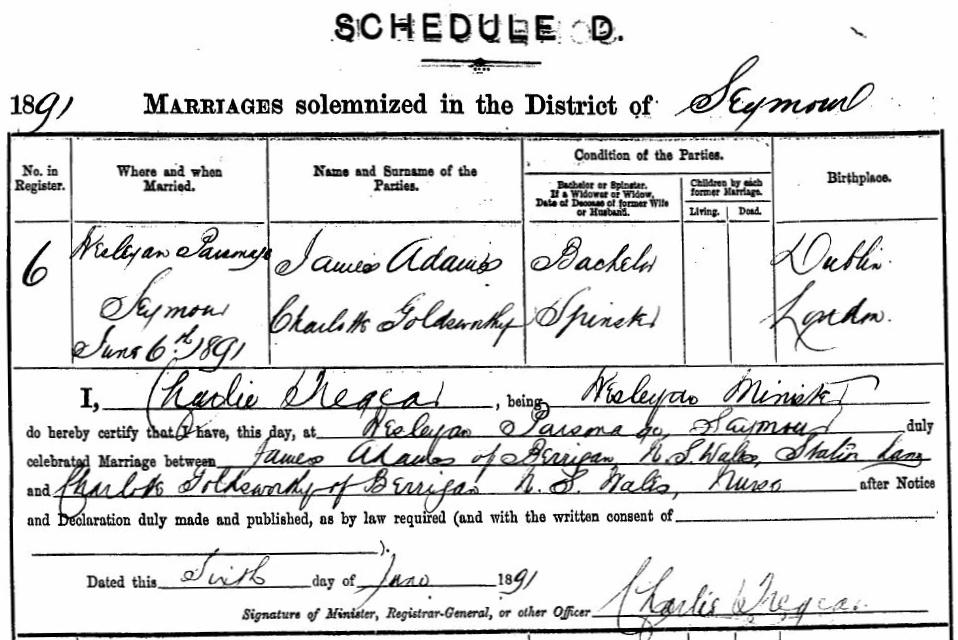 SCHEDULE D.
1891 MARRIAGES solemnized in the District of Seymour
No. in Register.
Where and when Married.
Name and Surname of the Parties.
Condition of the Parties.
Bachelor or Spinster. If a Widower or Widow, Date of Decease of former Wife or Husband.
Children by each former Marriage.
Living. Dead.
Birthplace.
6 Wesleyan Parsonage James Adams Bachelor Dublin
Seymour Charlotte Goldsworthy Spinster London.
June 6th 1891
I, Charlie Tregear, being Wesleyan Minister
do hereby certify that I have, this day, at Wesleyan Parsonage Seymour duly
celebrated Marriage between James Adams of Berrigan N. S. Wales, Station
and Charlotte Goldsworthy of Berrigan N. S. Wales, Nurse after Notice
and Declaration duly made and published, as by law required (and with the written consent of
).
Dated this Sixth day of June 1891
Signature of Minister, Registrar-General, or other Officer Charlie Tregear